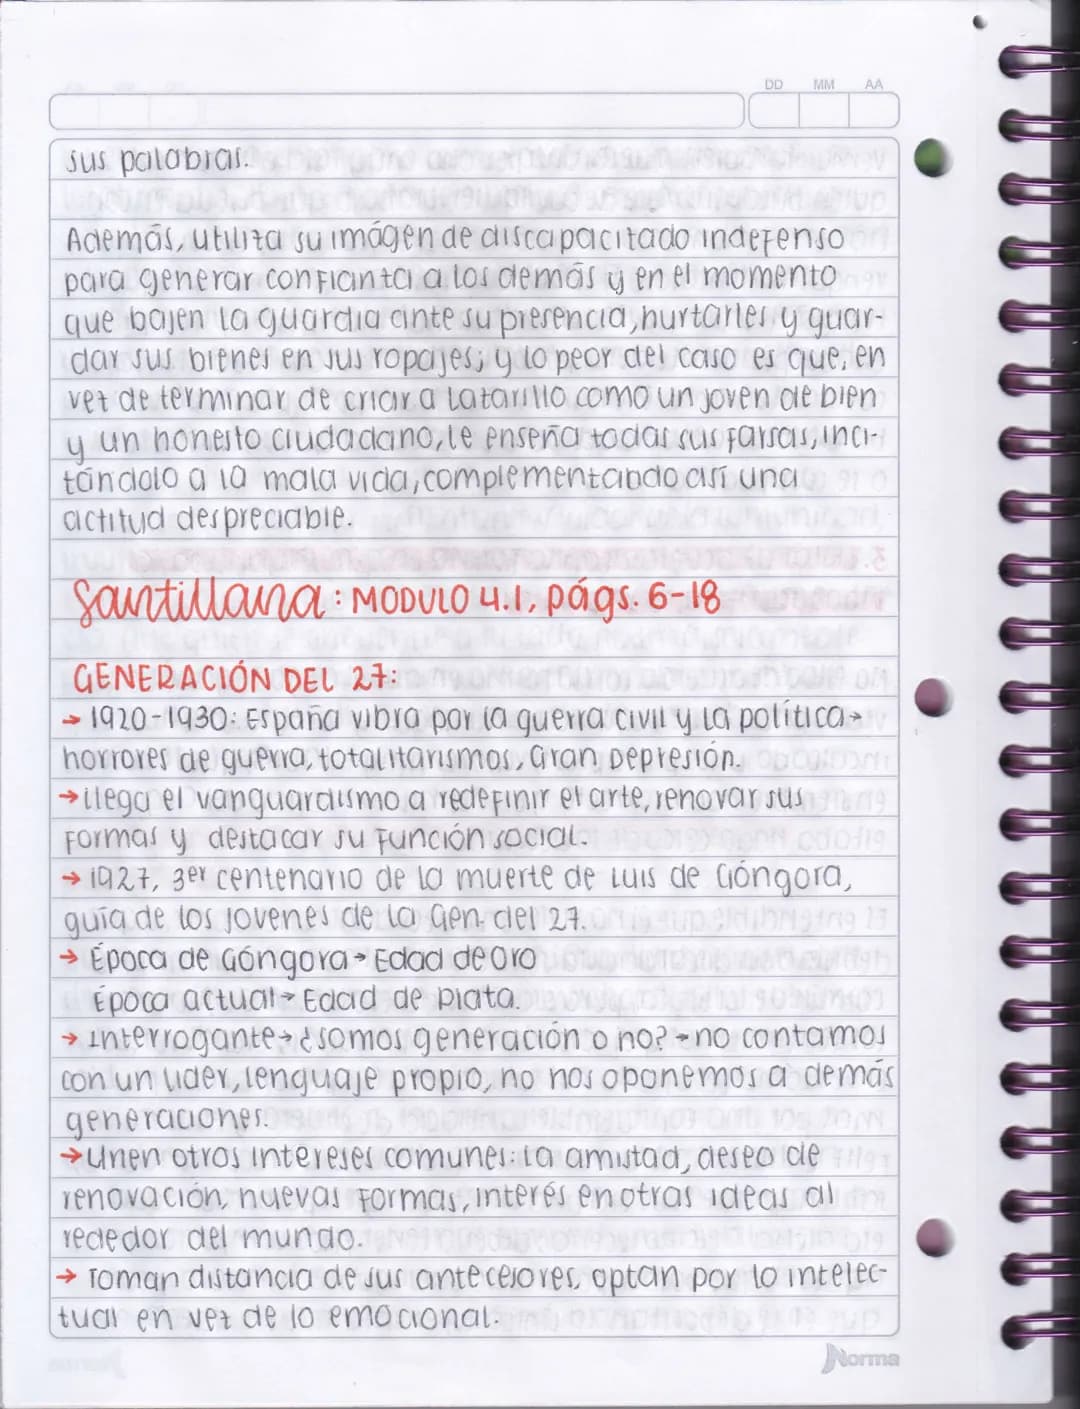 DD MM AA
sus palabras.
Además, utiliza su imágen de discapacitado indefenso
para generar confianza a los demás y en el momento
que bajen la guardia ante su presencia, hurtarles y guar-
dar sus bienes en sus ropajes; y lo peor del caso es que, en
vez de terminar de criar a Lazarillo como un joven de bien
y un honesto ciudadano, le enseña todas sus farsas, inci-
tándolo a la mala vida, complementando así una
actitud despreciable.
Santillana: MODULO 4.1, págs. 6-18
GENERACIÓN DEL 27:
→ 1920-1930: España vibra por la guerra civil y la política→
horrores de guerra, totalitarismos, Gran Depresión.
→ Llega el vanguardismo a redefinir el arte, renovar sus
formas y destacar su función social.
→ 1927, 3er centenario de la muerte de Luis de Góngora,
guía de los jovenes de la Gen. del 27.
→ Época de Góngora → Edad de Oro
Época actual → Edad de Plata.
→ Interrogante → ¿somos generación o no? → no contamos
con un lider, lenguaje propio, no nos oponemos a demás
generaciones.
→ Unen otros intereses comunes: la amistad, deseo de
renovación, nuevas formas, interés en otras ideas al
rededor del mundo.
→ Toman distancia de sus antecesores, optan por lo intelec-
tual en vez de lo emocional.
Norma